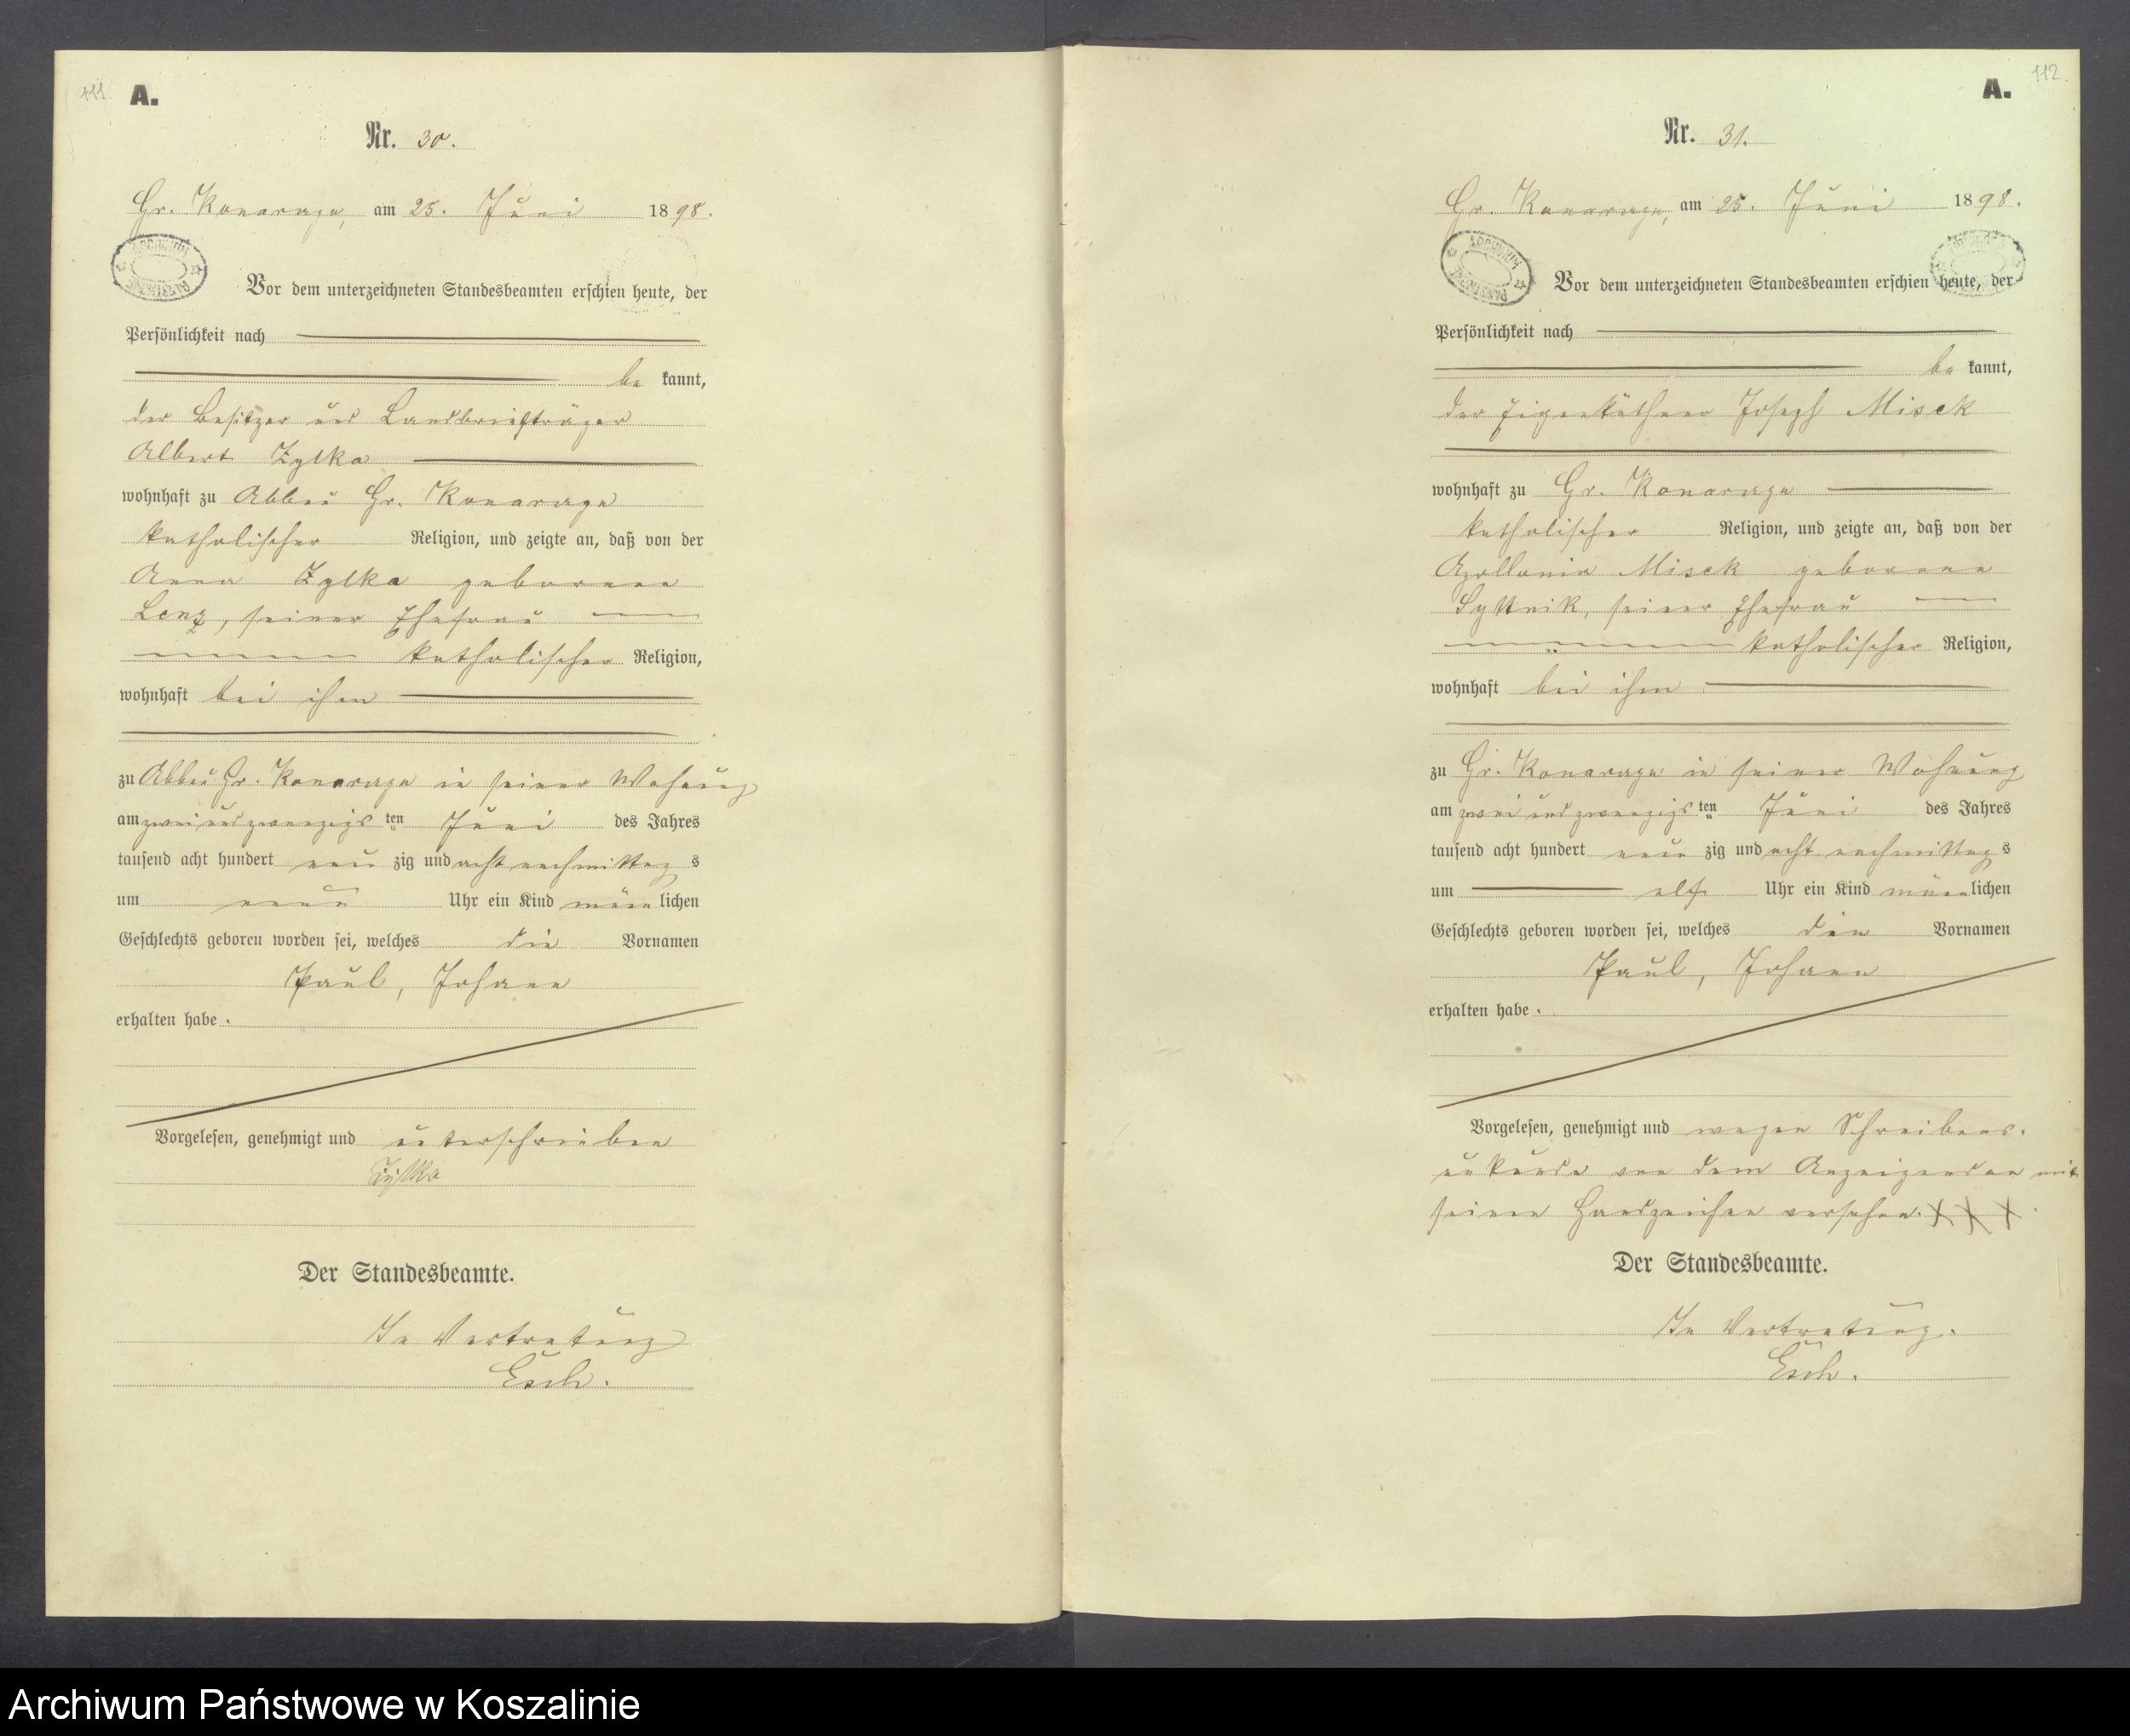 111.
A.
Nr. 30.
Gr. Konarzyn, am 25. Juni 1898.
ARCHIWUM
Vor dem unterzeichneten Standesbeamten erschien heute, der
Persönlichkeit nach
be kannt,
der Besitzer und Landbriefträger
Albert Zylka
wohnhaft zu Abbau Gr. Konarzyn
katholischer Religion, und zeigte an, daß von der
Anna Zylka geborenen
Lenz, seiner Ehefrau
katholischer Religion,
wohnhaft bei ihm
zu Abbau Gr. Konarzyn in seiner Wohnung
am zwei und zwanzigsten Juni des Jahres
tausend acht hundert neun zig und acht nachmittag s
um neun Uhr ein Kind männ lichen
Geschlechts geboren worden sei, welches die Vornamen
Paul, Johann
erhalten habe.
Vorgelesen, genehmigt und unterschrieben
Zylka
Der Standesbeamte.
In Vertretung
Esch.
112.
A.
Nr. 31.
Gr. Konarzyn, am 25. Juni 1898.
ARCHIWUM
Vor dem unterzeichneten Standesbeamten erschien heute, der
Persönlichkeit nach
be kannt,
der Eigenkäthner Joseph Misek
wohnhaft zu Gr. Konarzyn
katholischer Religion, und zeigte an, daß von der
Apollonia Misek geborenen
seiner Ehefrau
katholischer Religion,
wohnhaft bei ihm
zu Gr. Konarzyn in seiner Wohnung
am zwei und zwanzigsten Juni des Jahres
tausend acht hundert neun zig und acht nachmittag s
um elf Uhr ein Kind männ lichen
Geschlechts geboren worden sei, welches die Vornamen
Paul, Johann
erhalten habe.
Vorgelesen, genehmigt und wegen Schreibens-
unkunde von dem Anzeigenden mit
seinen Handzeichen versehen. X X X.
Der Standesbeamte.
In Vertretung.
Esch.
Archiwum Państwowe w Koszalinie